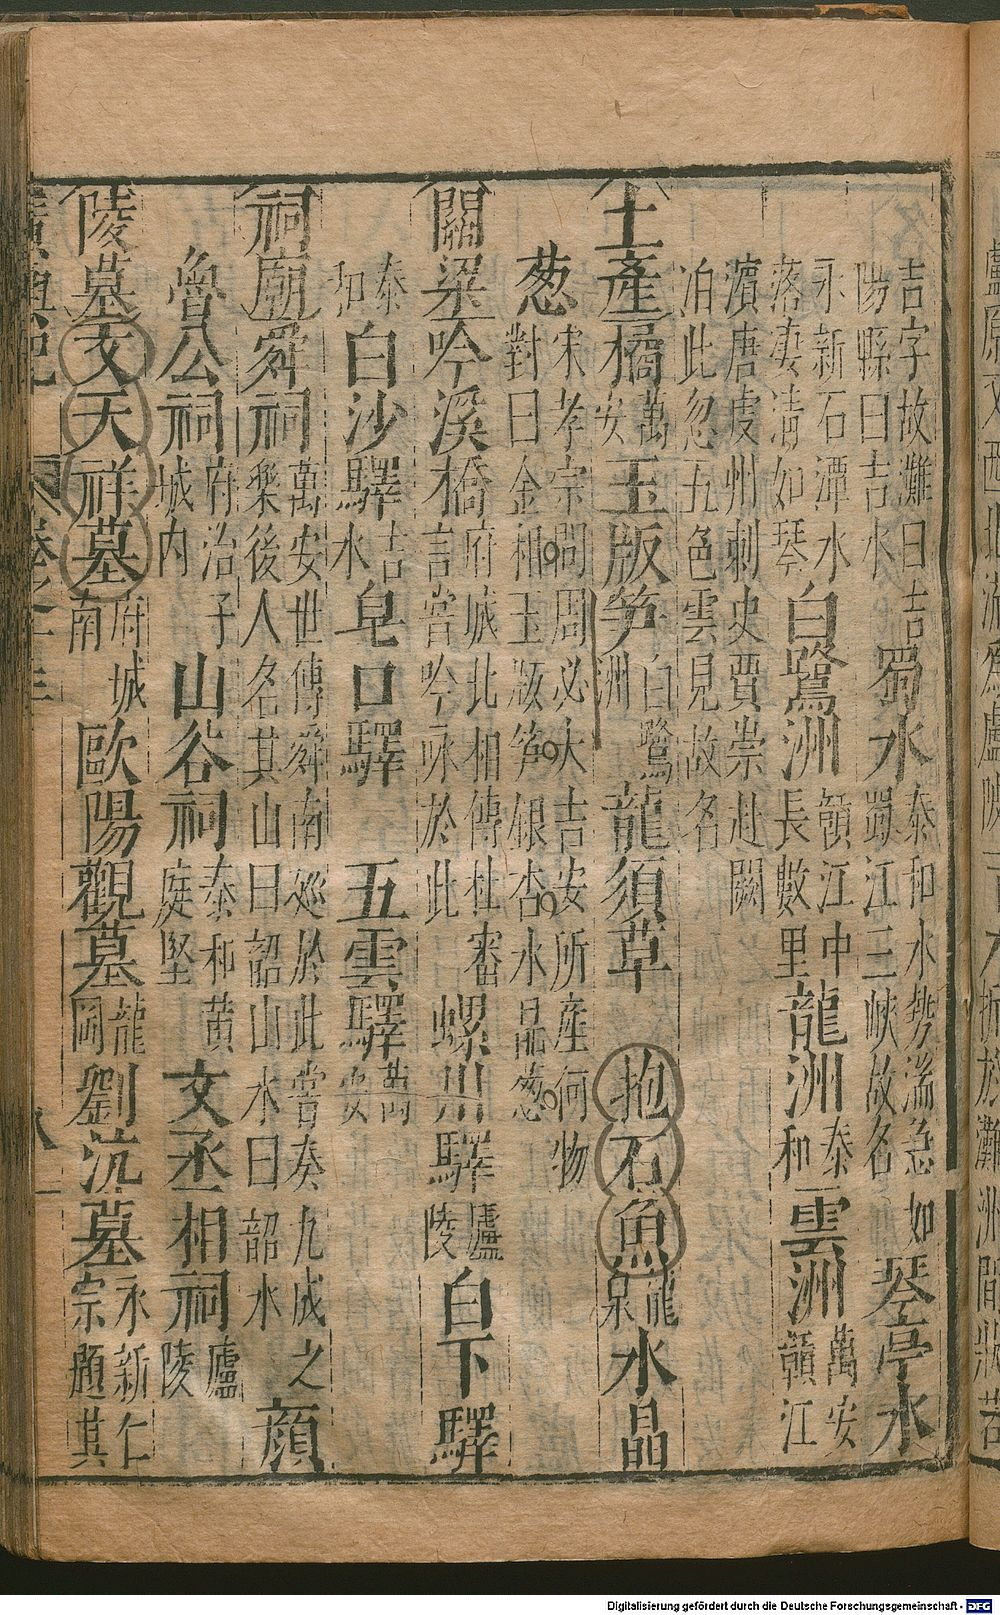 吉字故灘曰吉陽縣曰吉水 蜀水泰和水勢湍急如蜀江三峽故名 琴亭水
永新石潭水落淒清如琴 白鷺洲贛江中長數里 龍洲泰和 雲洲萬安贛江
濵唐虔州刺史賈崇赴闕泊此忽五色雲見故名
土產 橘萬安 玉版笋白鷺洲 龍須草 抱石魚龍泉 水晶
葱宋孝宗問周必大吉安所產何物對曰金柑玉版笋銀杏水晶葱
關梁 吟溪橋府城北相傳杜審言嘗吟咏於此 螺川驛廬陵 白下驛
泰和 白沙驛吉水 皂口驛 五雲驛萬安
祠廟 舜祠萬安世傳舜南巡於此嘗奏九成之樂後人名其山曰韶山水曰韶水 顏
魯公祠府治子城内 山谷祠泰和黃庭堅 文丞相祠廬陵
陵墓 文天祥墓府城南 歐陽觀墓龍岡 劉沆墓永新仁宗顧其
Digitalisierung gefördert durch die Deutsche Forschungsgemeinschaft - DFG